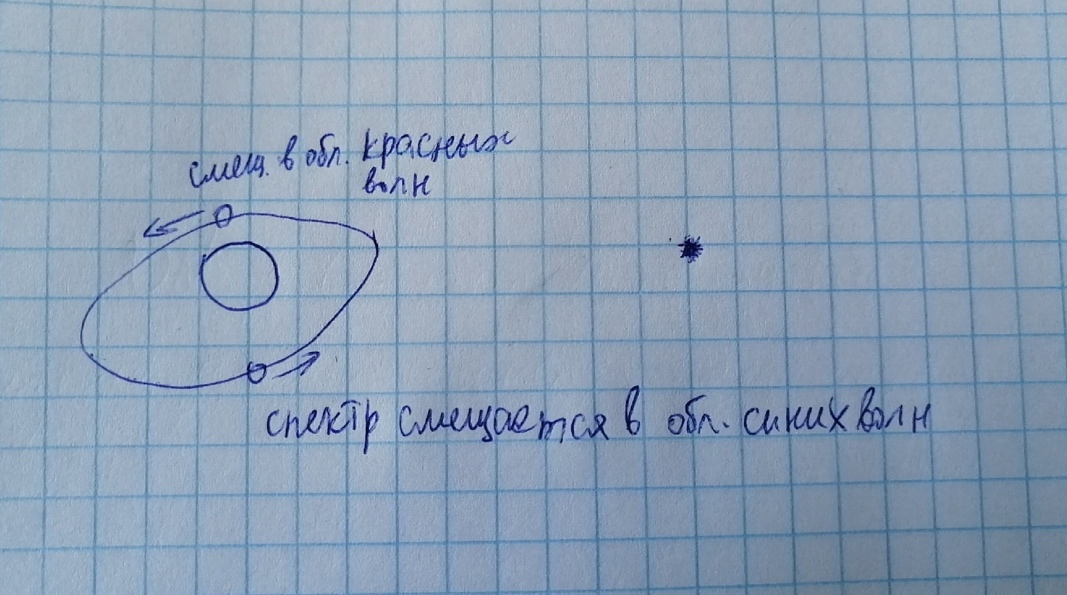 смещ. в обл. красных
волн
спектр смещается в обл. синих волн